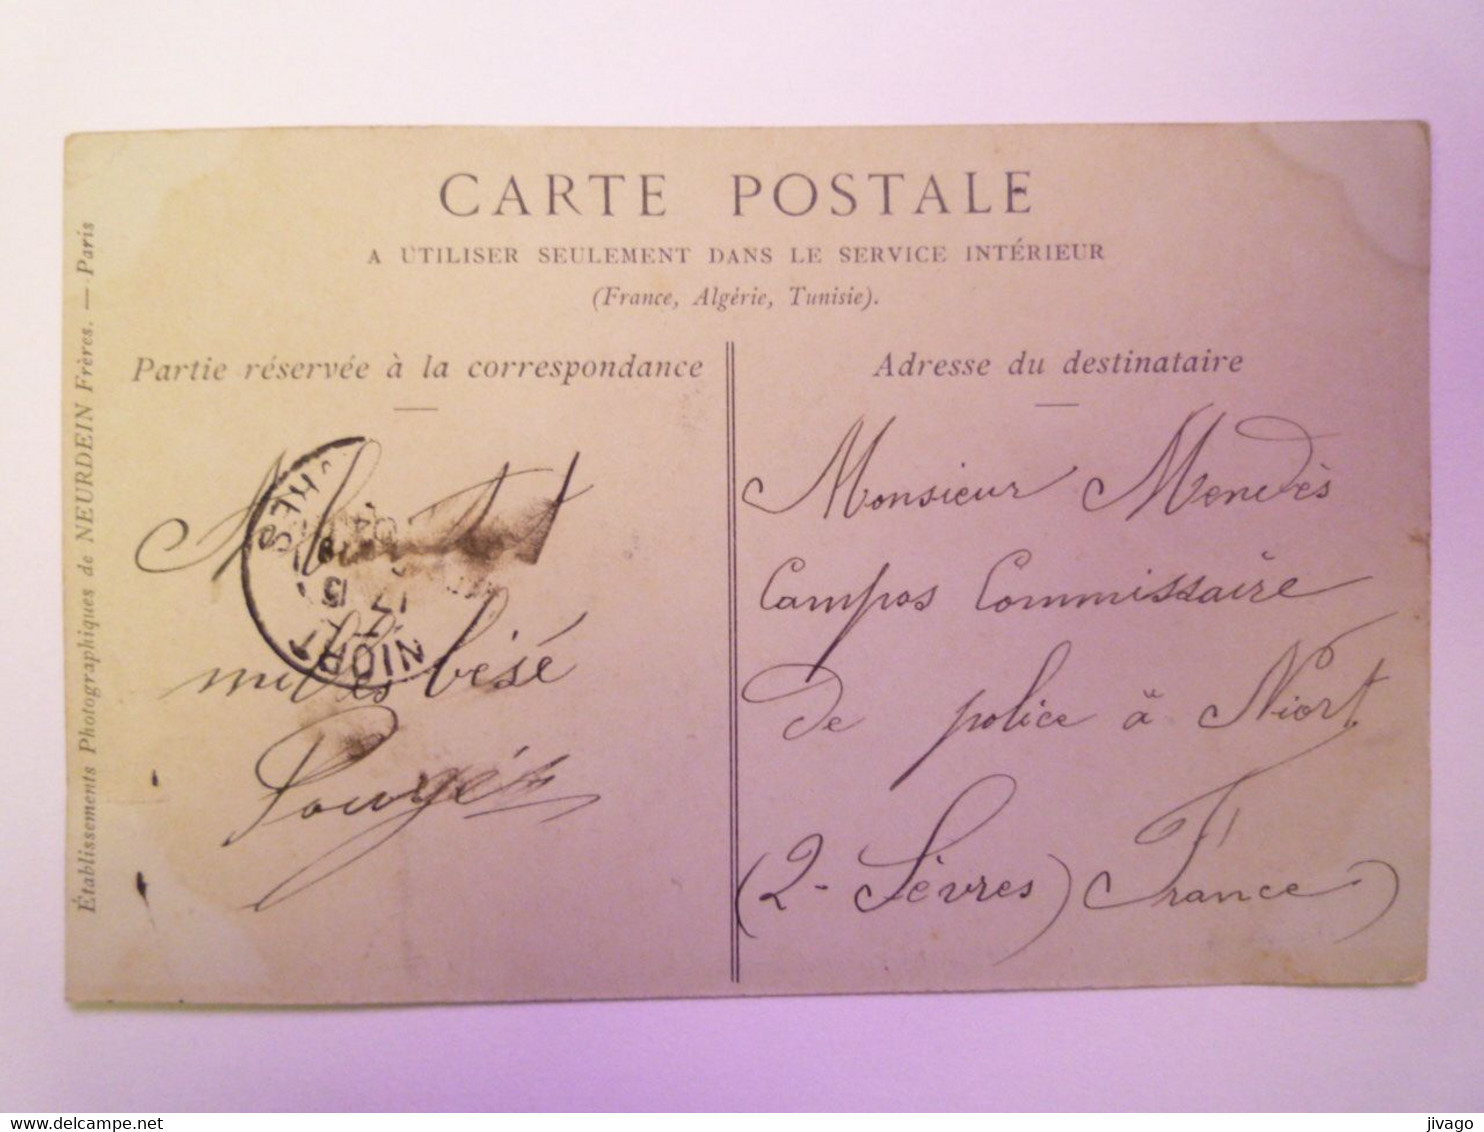 CARTE POSTALE
A UTILISER SEULEMENT DANS LE SERVICE INTÉRIEUR
(France, Algérie, Tunisie).
Établissements Photographiques de NEURDEIN Frères. — Paris
Partie réservée à la correspondance
milles bésé
NIORT
17
SÈVRES
Adresse du destinataire
Monsieur Mendès
Campos Commissaire
de police à Niort
(2-Sèvres) France)
www.delcampe.net
jivago